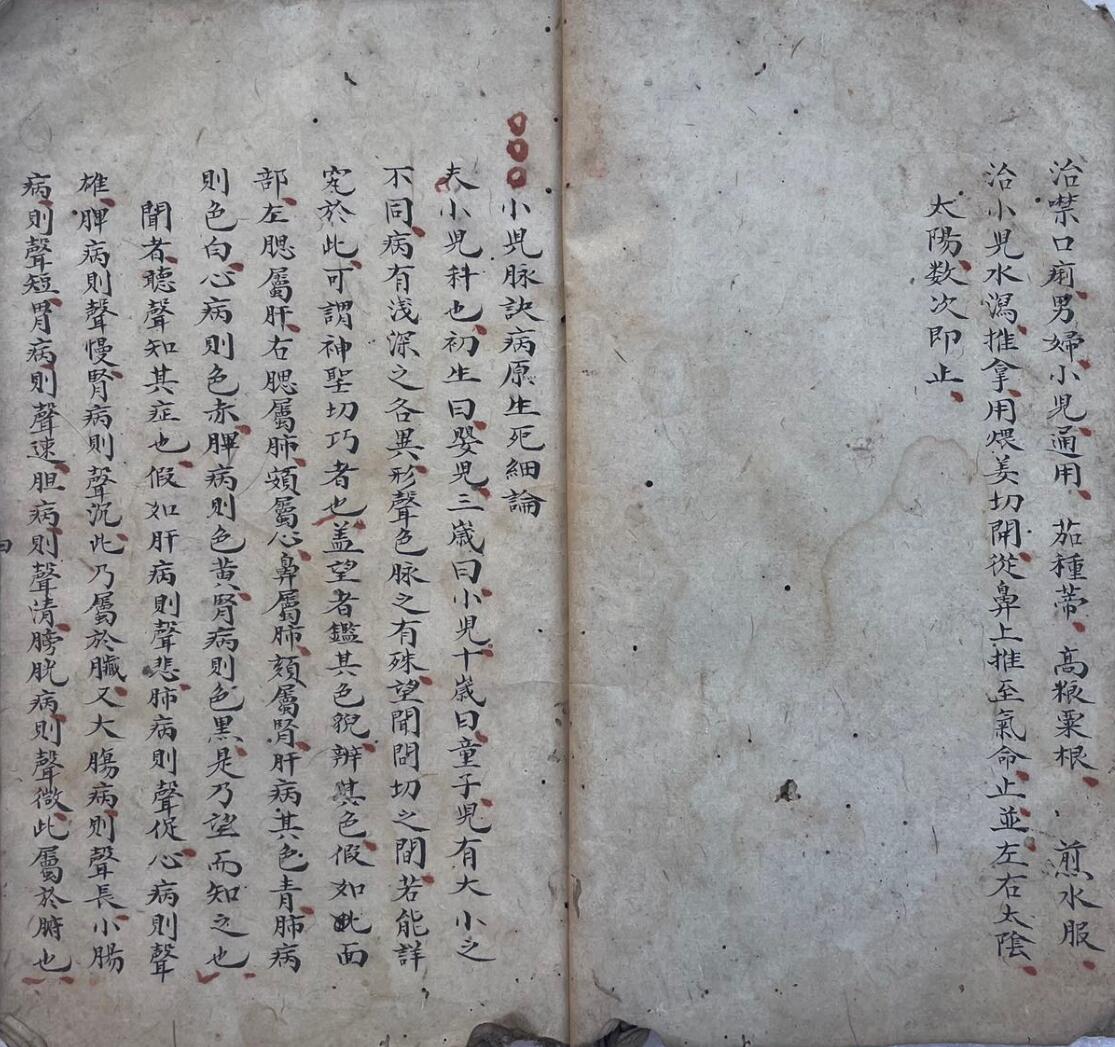 治噤口痢男婦小児通用 茄種蒂 高粮粟根 煎水服
治小児水瀉推拿用煨姜切開從鼻上推至氣命止並左右太陰
太陽数次即止
小児脉訣病原生死細論
夫小児科也初生曰嬰児三歲曰小児十歲曰童子児有大小之
不同病有浅深之各異形聲色脉之有殊望聞問切之間若能詳
究於此可謂神聖切巧者也盖望者鑑其色貌辨其色假如此面
部左腮屬肝右腮屬肺頞屬心鼻屬肺頦屬腎肝病其色青肺病
則色白心病則色赤脾病則色黄腎病則色黒是乃望而知之也
聞者聴聲知其症也假如肝病則聲悲肺病則聲促心病則聲
雄脾病則聲慢腎病則聲沉此乃屬於臟又大腸病則聲長小腸
病則聲短胃病則聲速胆病則聲清膀胱病則聲微此屬於腑也